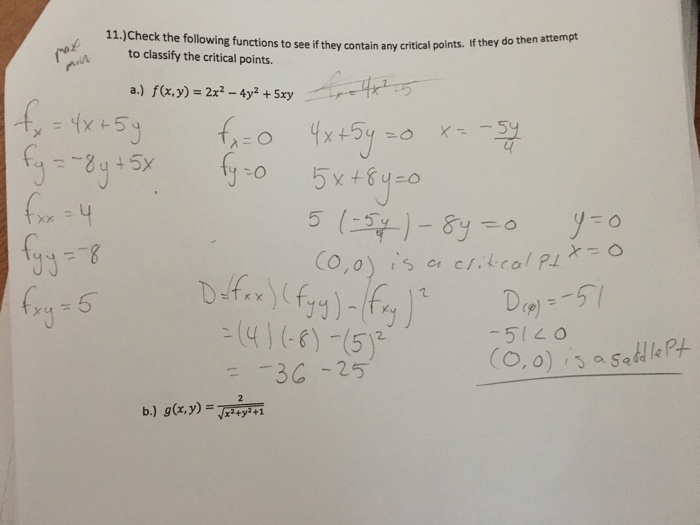 11.) Check the following functions to see if they contain any critical points. If they do then attempt
to classify the critical points.
max
min
a.) f(x,y) = 2x² – 4y² + 5xy
fx = 4x² - 5
fx = 4x + 5y
fy = -8y + 5x
fxx = 4
fyy = -8
fxy = 5
fx = 0 4x + 5y = 0 x = -5y/4
fy = 0 5x + 8y = 0
5 (-5y/4) - 8y = 0 y = 0
x = 0
(0,0) is a critical pt.
D = (fxx)(fyy) - (fxy)² = -51
= (4)(-8) - (5)² -51 < 0
= -36 - 25 (0,0) is a saddle Pt
b.) g(x,y) = 2/√x²+y²+1